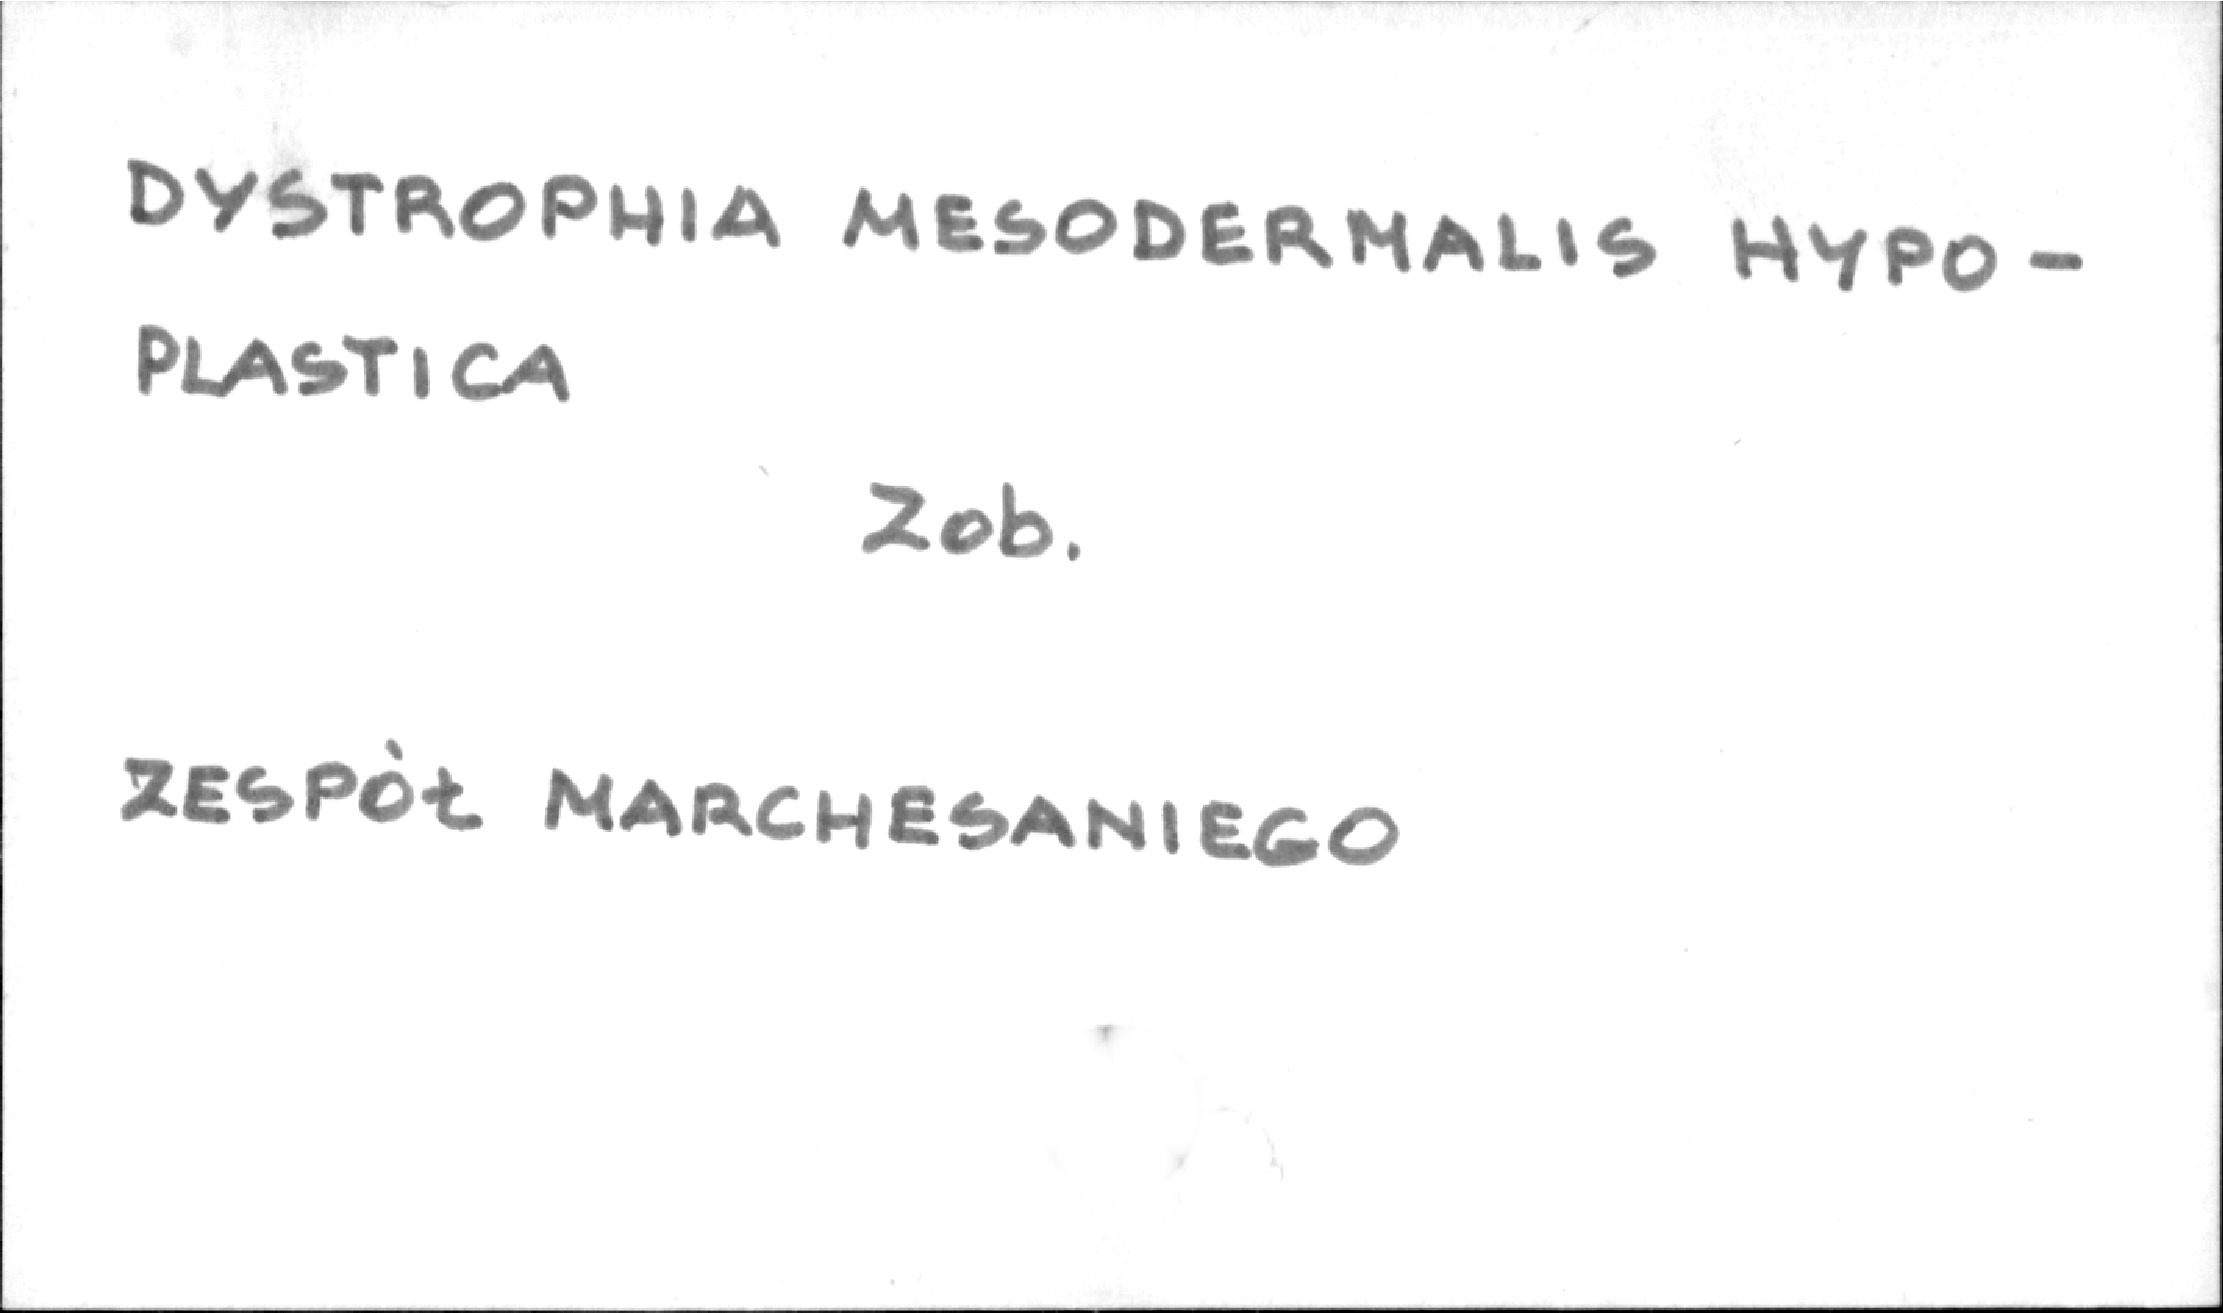 DYSTROPHIA MESODERMALIS HYPO-
PLASTICA
Zob.
ZESPÓŁ MARCHESANIEGO